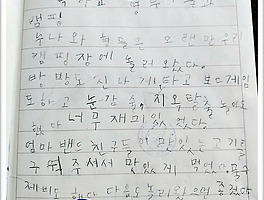 캠핑
누나와 형들은 오랜만 우리
캠핑장에 놀러 왔다.
방방도 신나게 타고 보드게임
도 하고 눈감술, 지옥탈출 놀이도
했다 너무 재미있었다
엄마 밴드 친구들이 맛있는 고기를
구워 주셔서 맛있게 먹었다
도 했다 다음도 놀러 왔으면 좋겠다